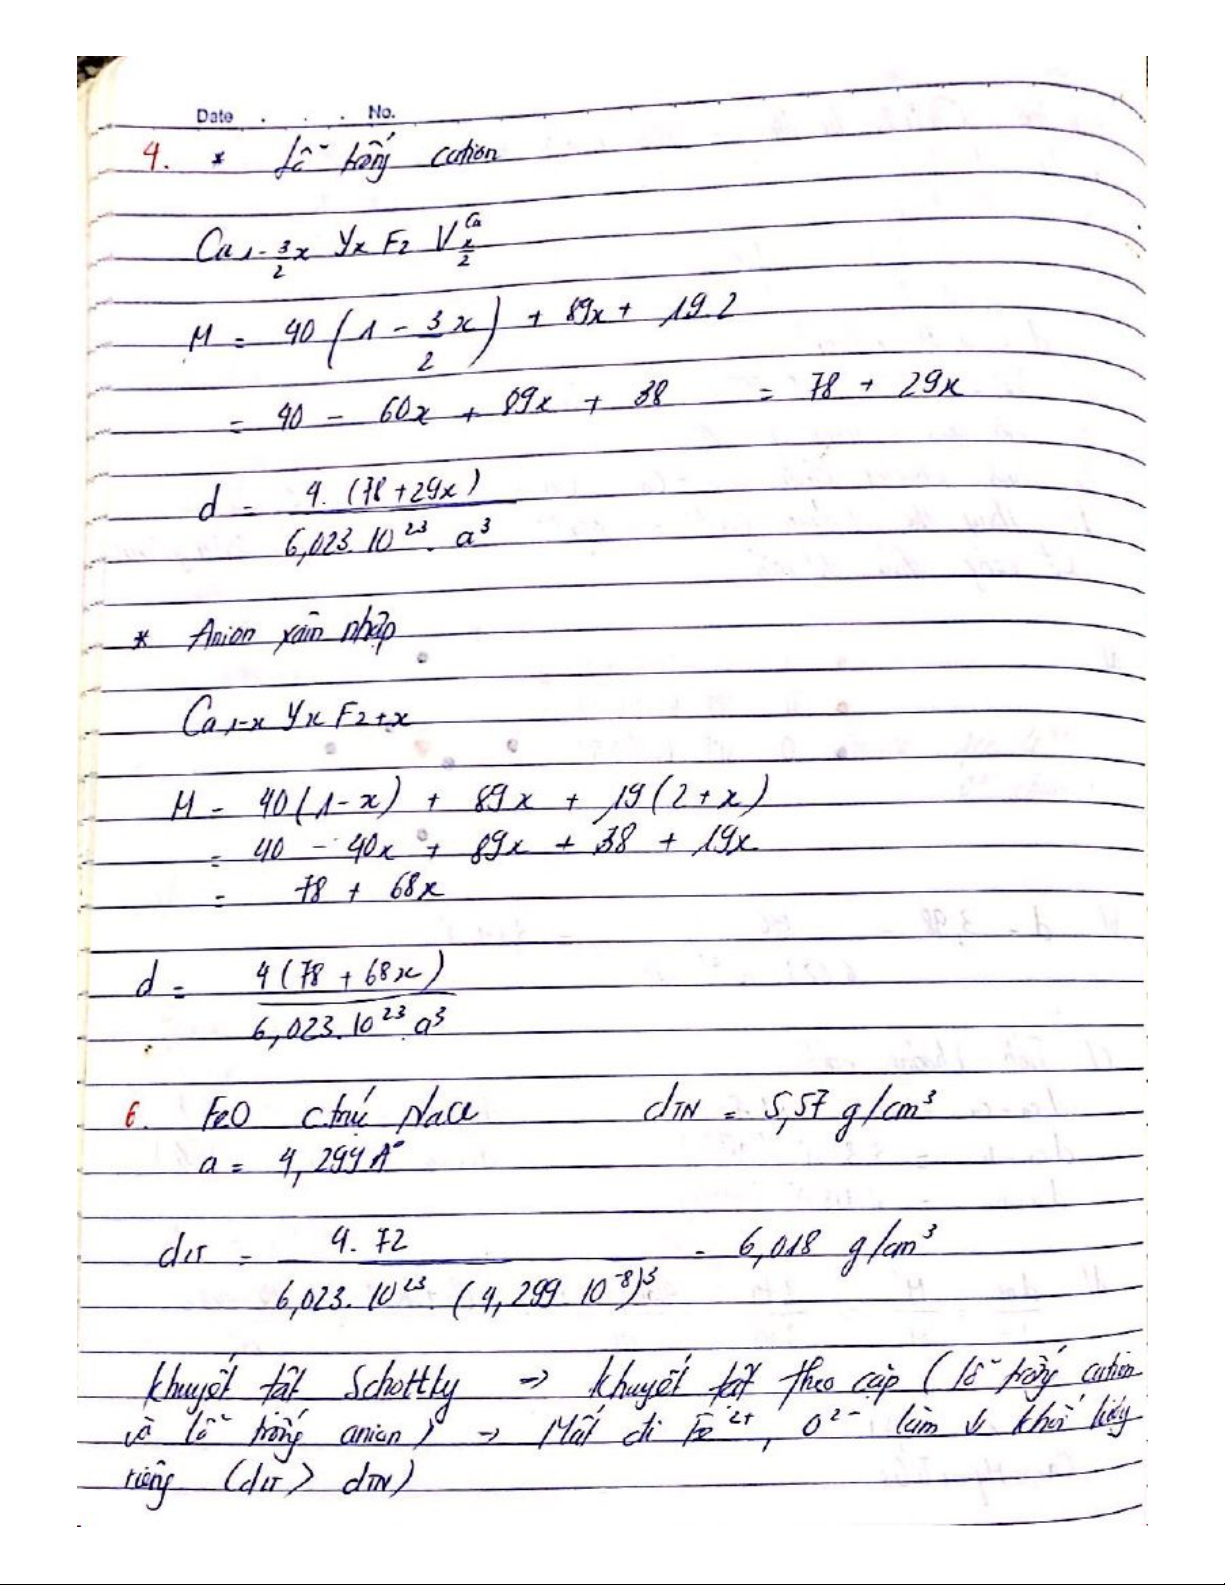 Date . . . No.
4. * Lỗ trống cation
Ca1-3/2x Yx F2 V^Ca x/2
M = 40 (1 - 3/2 x) + 89x + 19.2
= 40 - 60x + 89x + 38 = 78 + 29x
d = 4. (78 + 29x) / 6,023. 10^23. a^3
* Anion xâm nhập
Ca1-x Yx F2+x
M = 40(1-x) + 89x + 19(2+x)
= 40 - 40x + 89x + 38 + 19x
= 78 + 68x
d = 4(78 + 68x) / 6,023. 10^23. a^3
6. FeO c trúc NaCl dTN = 5,57 g/cm^3
a = 4,299 A°
dLT = 4. 72 / 6,023. 10^23. (4,299. 10^-8)^3 = 6,018 g/cm^3
khuyết tật Schottky → khuyết tật theo cặp (lỗ trống cation
và lỗ trống anion) → Mất đi Fe^2+, O^2- làm ↓ khối lượng
riêng (dLT > dTN)